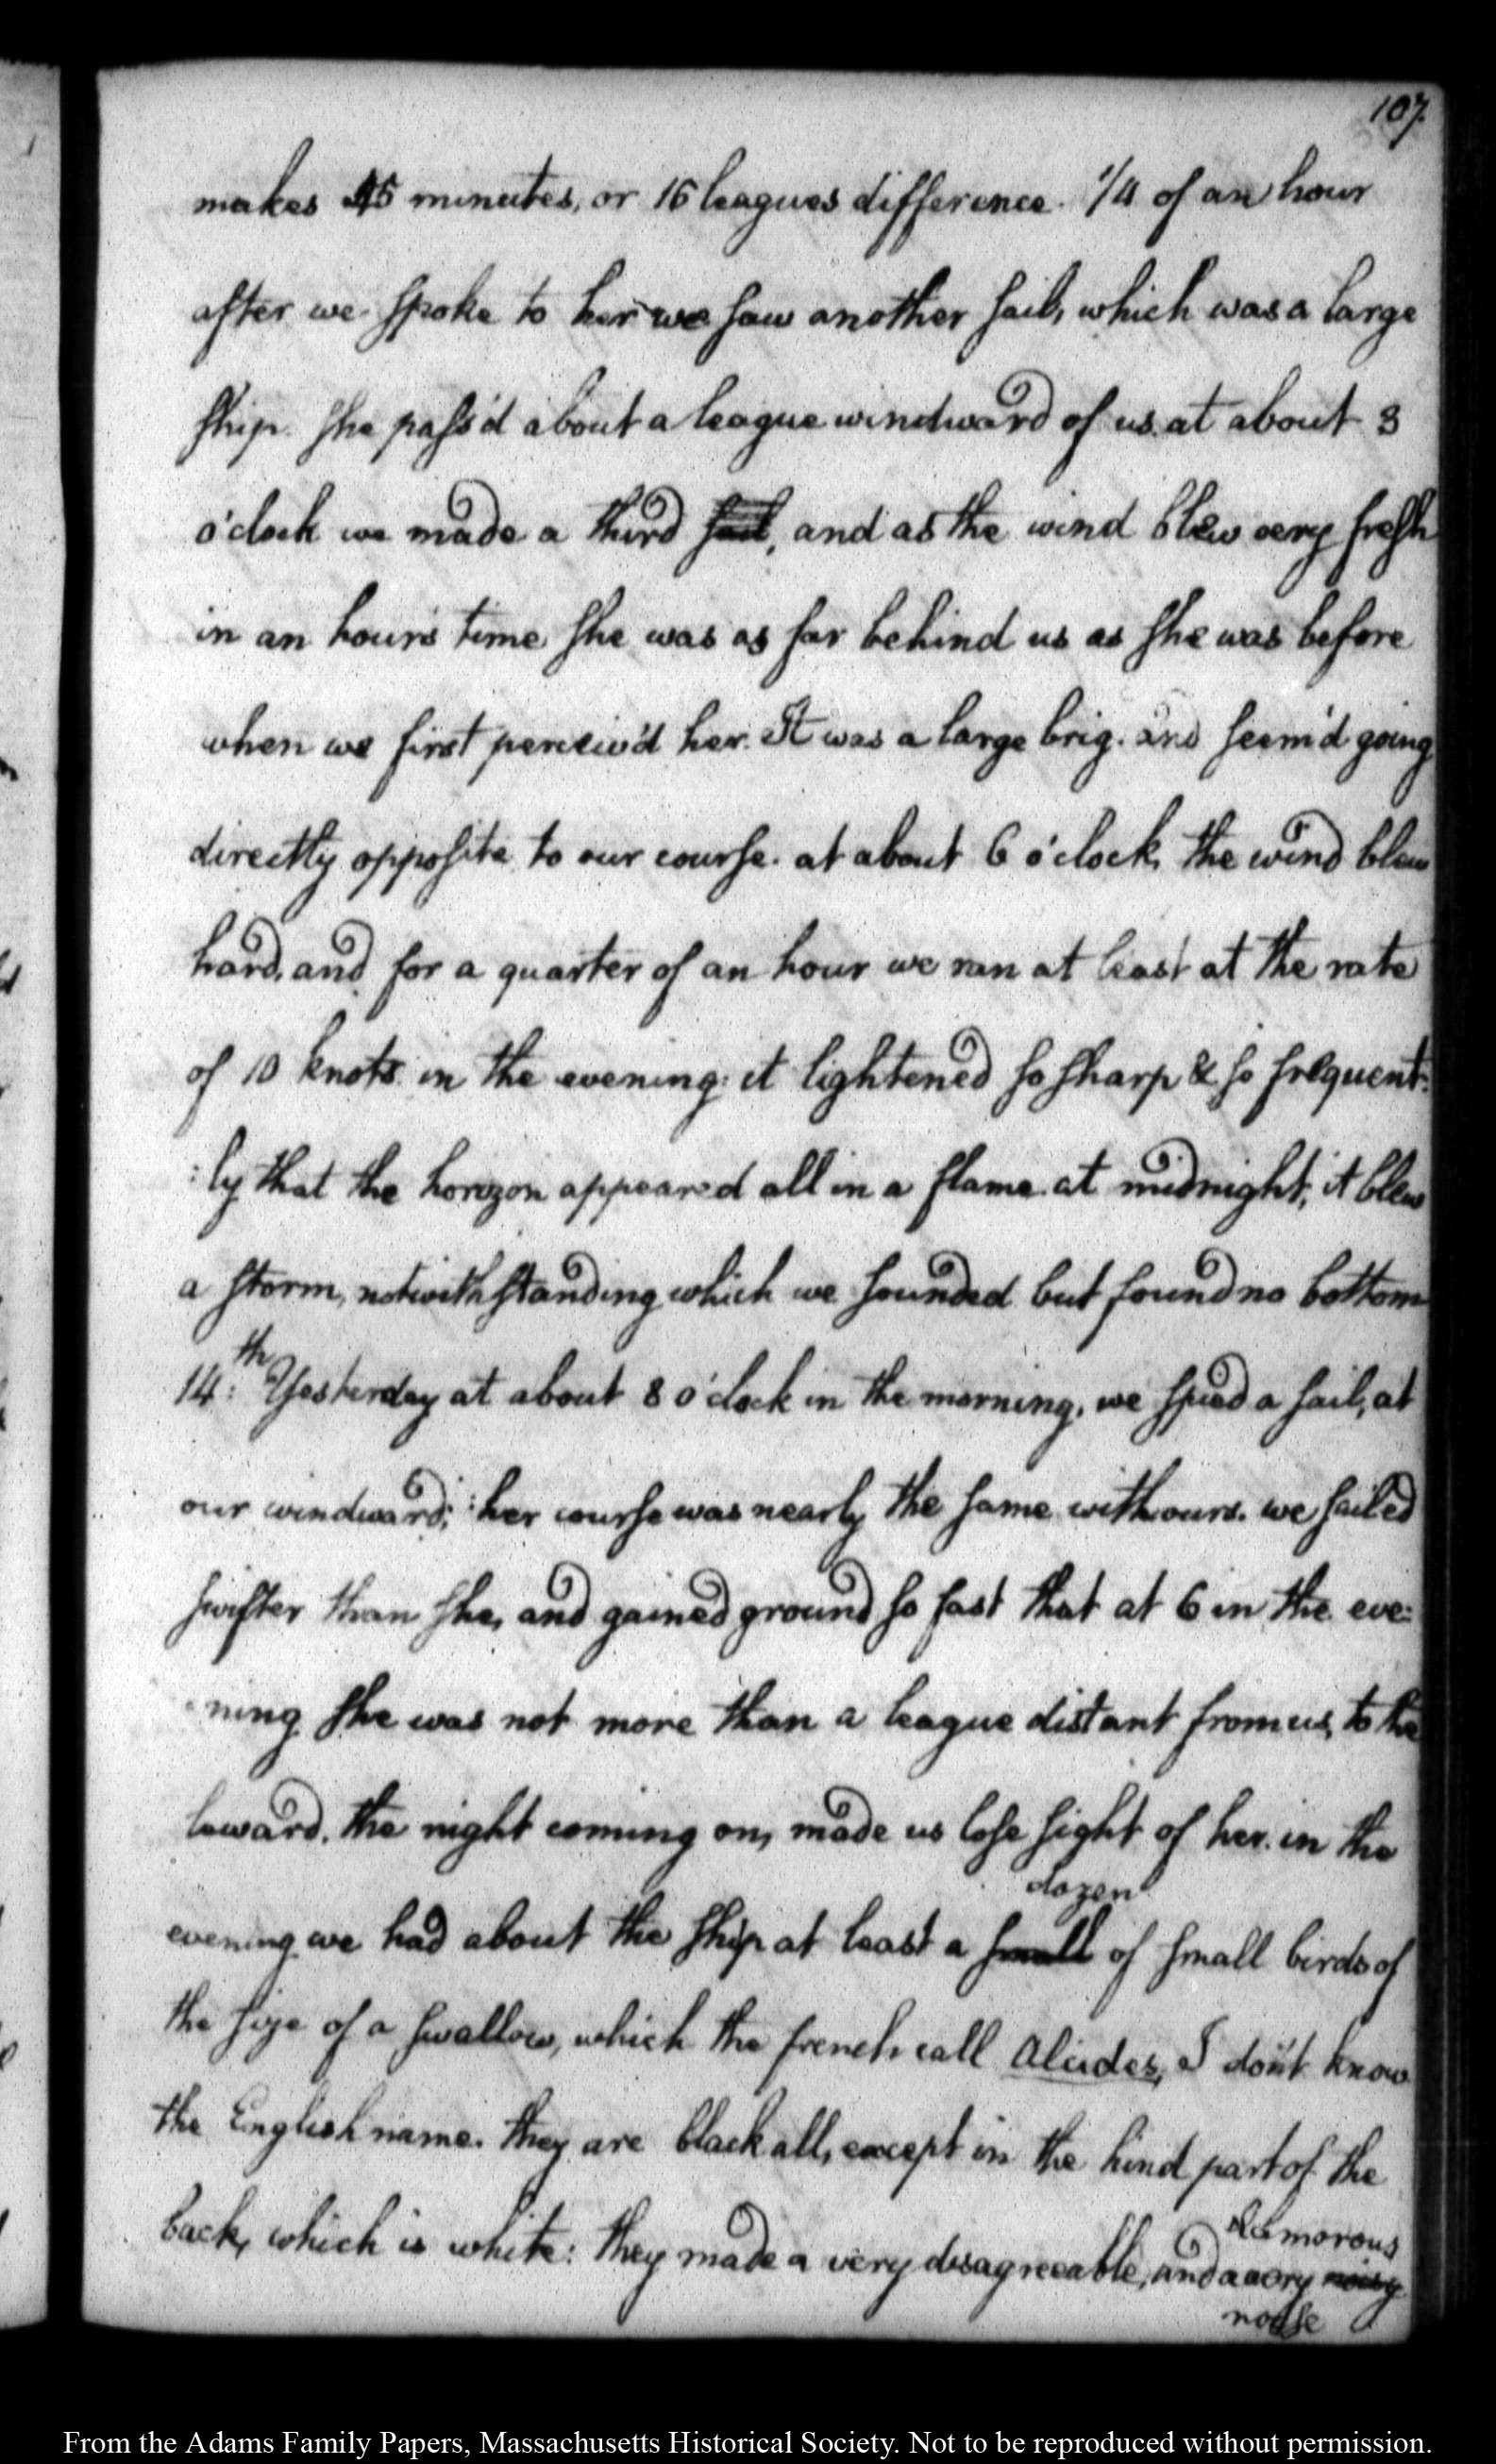 107.
makes 45 minutes, or 16 leagues difference. 1/4 of an hour
after we spoke to her we saw another sail, which was a large
ship. she pass'd about a league windward of us. at about 3
o'clock we made a third sail, and as the wind blew very fresh
in an hour's time she was as far behind us as she was before
when we first perceiv'd her. It was a large brig. and seem'd going
directly opposite to our course. at about 6 o'clock, the wind blew
hard, and for a quarter of an hour we ran at least at the rate
of 10 knots. in the evening it lightened so sharp & so frequent:
:ly that the horizon appeared all in a flame. at midnight, it blew
a storm, notwithstanding which we sounded but found no bottom
14:th Yesterday at about 8 o'clock in the morning, we spied a sail, at
our windward; her course was nearly the same with ours. we sailed
swifter than she, and gained ground so fast that at 6 in the eve:
ning she was not more than a league distant from us, to the
leward. the night coming on, made us lose sight of her. in the
dozen
evening we had about the ship at least a small of small birds of
the size of a swallow, which the french call Alcides, I don't know
the English name. they are black all, except in the hind part of the
clamorous
back, which is white: they made a very disagreeable, and a very noisy
noise
From the Adams Family Papers, Massachusetts Historical Society. Not to be reproduced without permission.